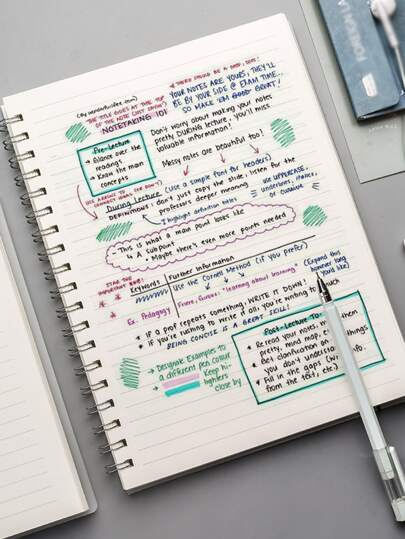 (By wonderfuulife.com)
* THERE SHOULD BE A DATE, TOO!
THE TITLE GOES AT THE TOP
OF THE NOTE (JUST SAYIN')
NOTETAKING 101
YOUR NOTES ARE YOURS, THEY'LL
BE BY YOUR SIDE @ EXAM TIME...
SO MAKE 'EM GOOD GREAT!
Pre-Lecture
Glance over the
readings
Know the main
concepts
Don't worry about making your notes
pretty DURING lecture, you'll miss
valuable information!
Messy notes are beautiful too!
During Lecture (use a simple font for headers)
DEFINITIONS: don't just copy the slide, listen for the
professors deeper meaning
I highlight definition titles
USE UPPERCASE,
underlines, italics,
or CURSIVE
- This is what a main point looks like
Is A Subpoint
Maybe there's even more points needed
STAR THE
IMPORTANT ONE!
Keywords | Further Information
Use the Cornell Method (if you prefer)
(Expand this
however long
you'd like)
Ex. Pedagogy
"learning about learning"
If a prof repeats something, WRITE IT DOWN!
If you're rushing to write it all, you're writing too much
BEING CONCISE IS A GREAT SKILL!
Designate Examples to
a different pen colour
Keep hi-
lighters
close by
Post-Lecture To
Re read your notes, them
pretty, mind map, e
Get clarification on things
you don't understand
Fill in the gaps (w info.
from the text, etc.)
FOREIGN LA